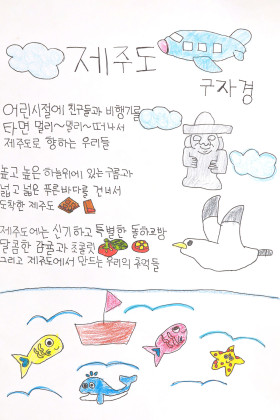 제주도
구자경
어린시절에 친구들과 비행기를
타면 멀리~멀리~떠나서
제주도로 향하는 우리들
높고 높은 하늘위에 있는 구름과
넓고 넓은 푸른 바다를 건너서
도착한 제주도
제주도에는 신기하고 특별한 돌하르방
달콤한 감귤과 초콜릿
그리고 제주도에서 만드는 우리의 추억들